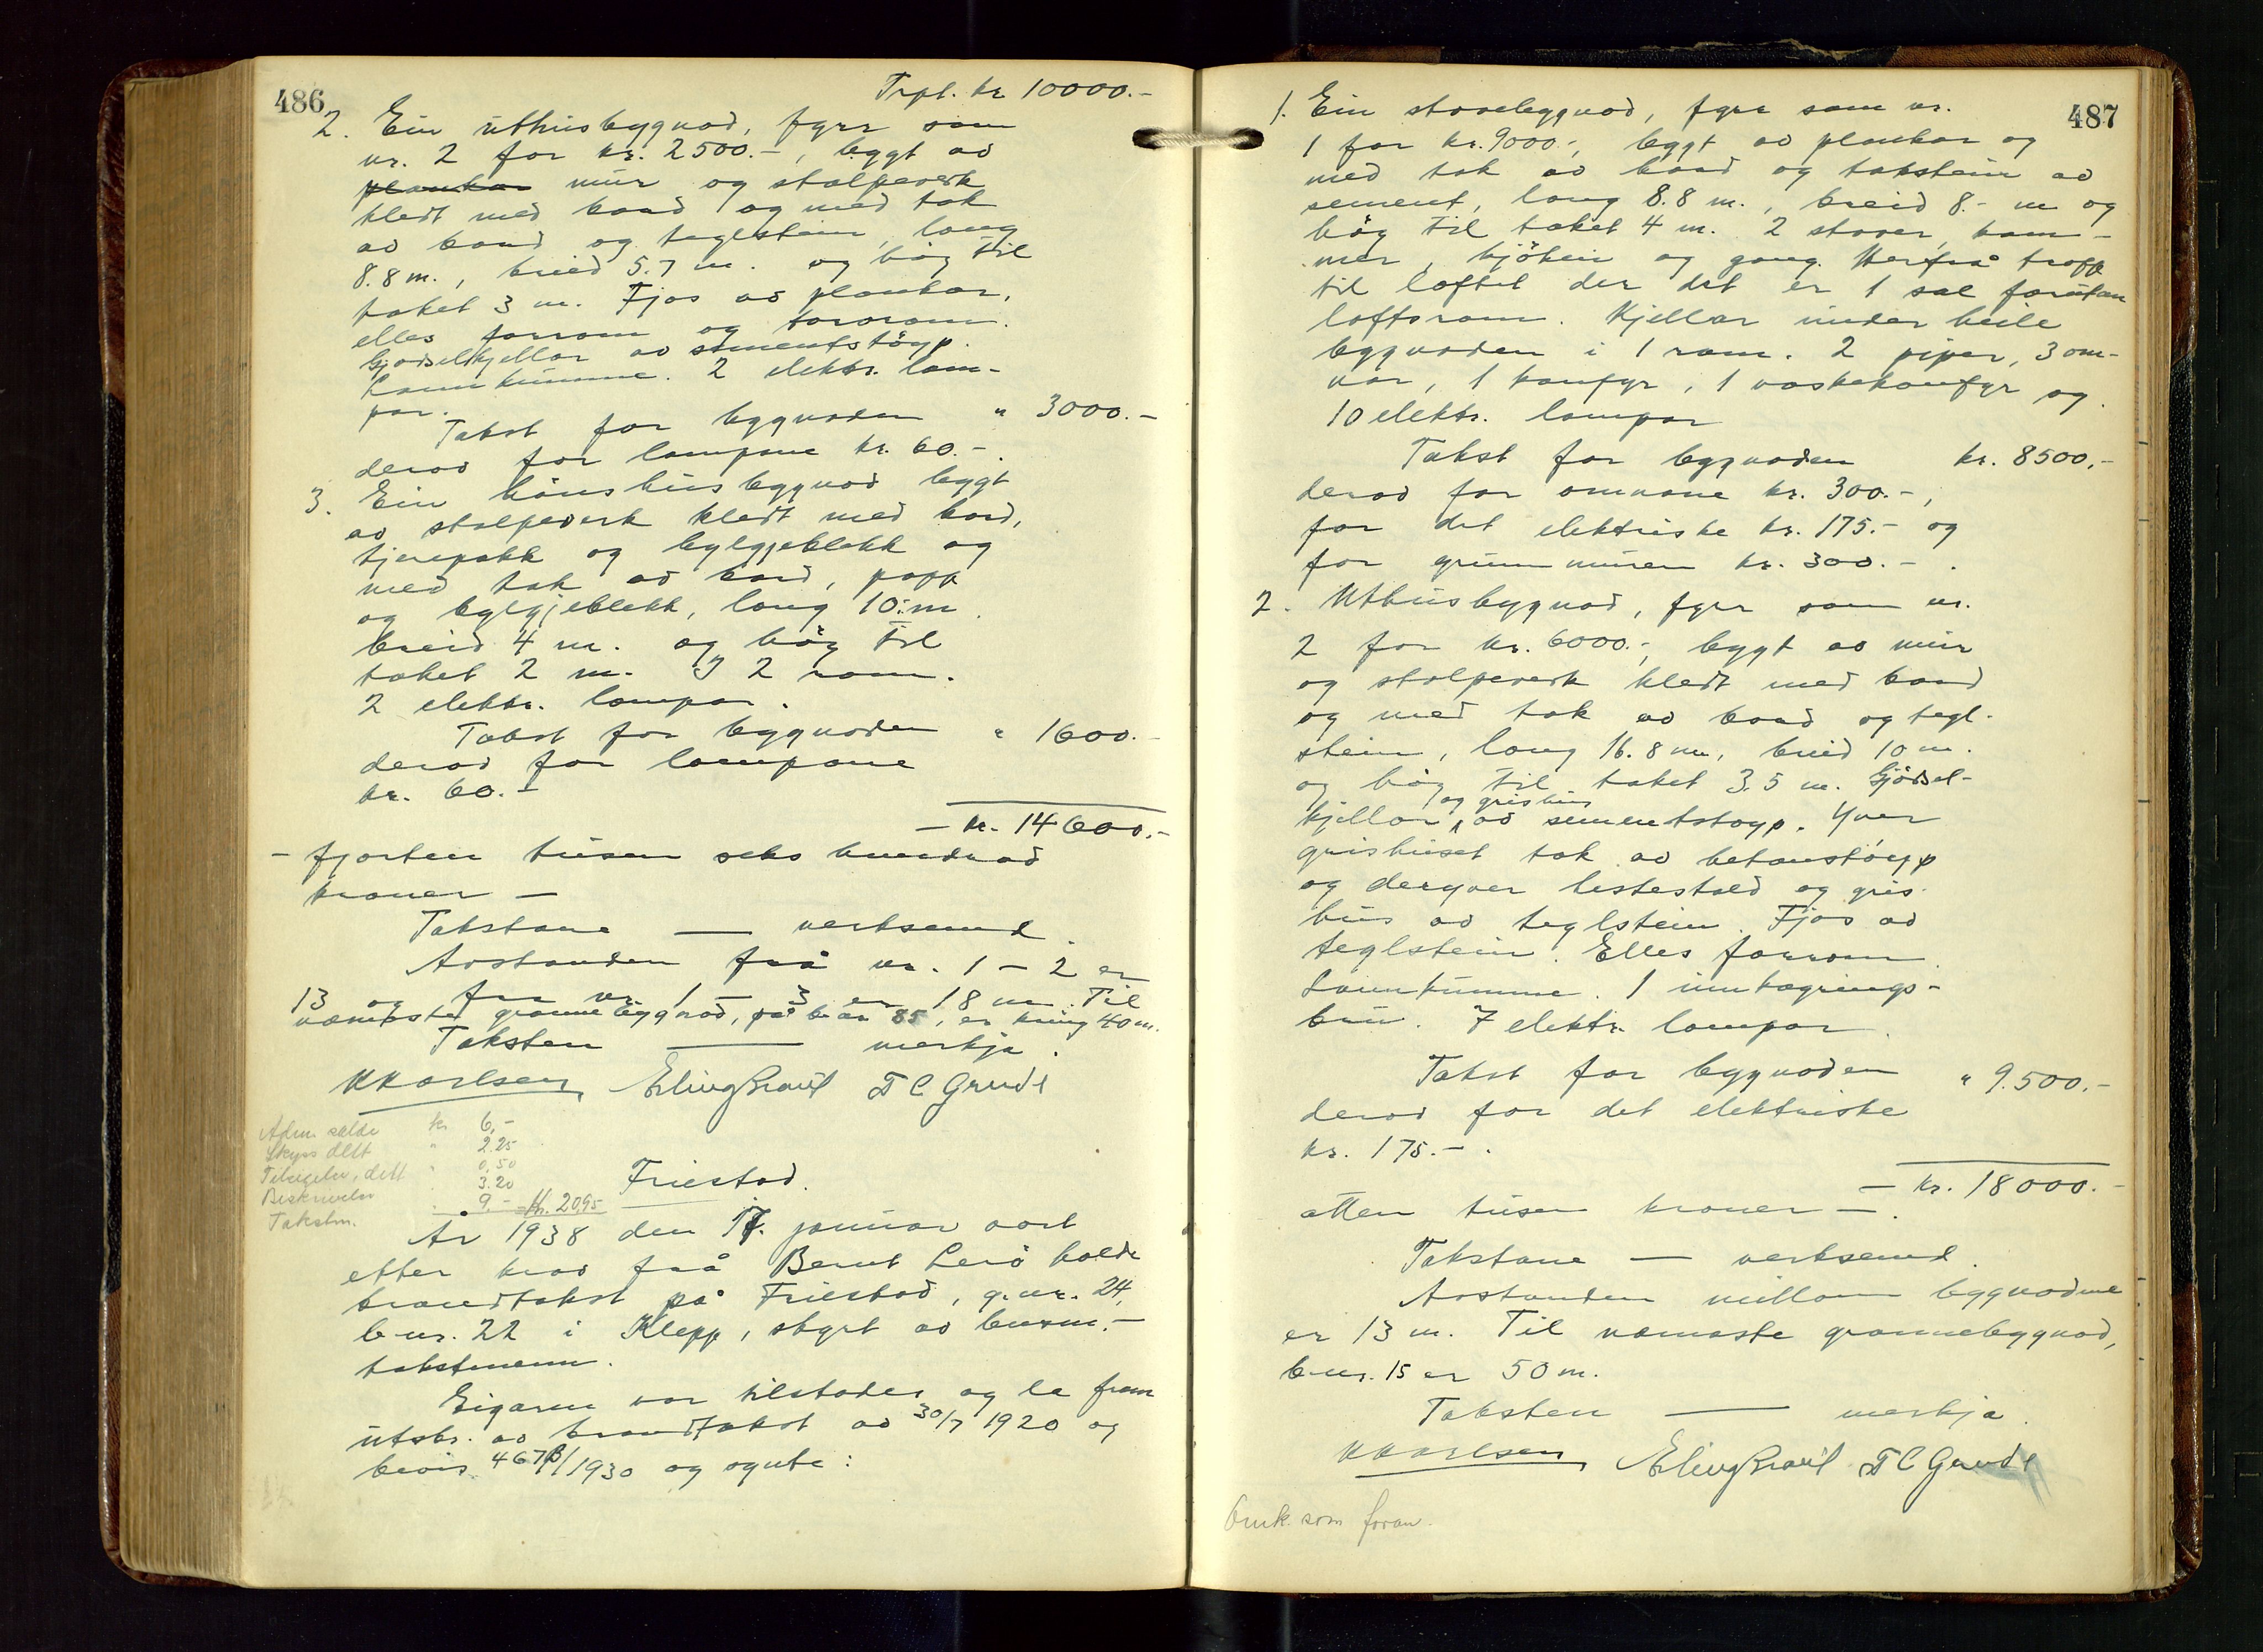 486
Trpt. kr 10000.-
2. Ein uthusbygnad, fyrr som
nr. 2 for kr. 2500.-, bygt av
plankar mur og stolpeverk
kledt med bord og med tak
av bord og teglstein, lang
8.8 m., breid 5.7 m. og høg til
taket 3 m. Fjos av plankar,
elles forrom og torvrom.
Gjødselkjellar av sementstøyp.
Lannkumme. 2 elektr. lam-
par.
Takst for bygnaden " 3000.-
derav for lampane kr. 60.-.
3. Ein hønshusbygnad bygt
av stolpeverk kledt med bord,
tjerepakk og bylgjeblekk og
med tak av bord, papp
og bylgjeblekk, lang 10.- m.
breid 4 m. og høg til
taket 2 m. I 2 rom.
2 elektr. lampar.
Takst for bygnaden " 1600.-
derav for lampane
kr. 60.-
- kr. 14600.-
- fjorten tusen seks hundrad
kroner -
Takstane — verksemd.
Avstanden frå nr. 1 - 2 er
13 og frå nr. 1 - 3 er 18 m. Til
næmaste grannebygnad, på b.nr 85, er kring 40 m.
Taksten — merkja.
K Karlsen Erling Braut T C Grude
Adm. sælde kr 6,-
Skyss dett " 2.25
Tilsigelse, dett " 0,50
Beskrivelse " 3.20
Takstm. " 9.- = Kr. 20,95
Friestad.
År 1938 den 17. januar vart
etter krav frå Bernt Lerø halde
brandtakst på Friestad, g.nr. 24,
b.nr. 22 i Klepp, styrt av lensm.-
takstmenn.
Eigaren var tilstades og la fram
utskr. av brandtakst av 30/7 1920 og
bevis 467B/1930 og synte:
487
1. Ein stovebygnad, fyrr som nr.
1 for kr. 9000.-, bygt av plankar og
med tak av bord og takstein av
sement, lang 8.8 m., breid 8.- m og
høg til taket 4 m. 2 stover, kam-
mer, kjøken og gang. Herfrå tropp
til loftet der det er 1 sal forutan
loftsrom. Kjellar under heile
bygnaden i 1 rom. 2 piper, 3 om-
nar, 1 komfyr, 1 vaskekomfyr og
10 elektr. lampar
Takst for bygnaden kr. 8500.-
derav for omnane kr. 300.-,
for det elektriske kr. 175.- og
for grunnmuren kr. 300.-.
2. Uthusbygnad, fyrr som nr.
2 for kr. 6000.-, bygt av mur
og stolpeverk kledt med bord
og med tak av bord og tegl-
stein, lang 16.8 m, breid 10 m.
og høg til taket 3.5 m. Gjødsel-
og grishus
kjellar av sementstøyp. Yver
grishuset tak av betonstøyp
og deryver hestestald og gris-
hus av teglstein. Fjos av
teglstein. Elles forrom.
Lannkumme. 1 innkøyrings-
bru. 7 elektr. lampar.
Takst for bygnaden " 9.500.-
derav for det elektriske
kr. 175.-.
- kr. 18000.-
atten tusen kroner -.
Takstane — verksemd.
Avstanden millom bygnadene
er 13 m. Til næmaste grannebygnad,
b.nr. 15 er 50 m.
Taksten — merkja.
K Karlsen Erling Braut T C Grude
Omk. som foran.